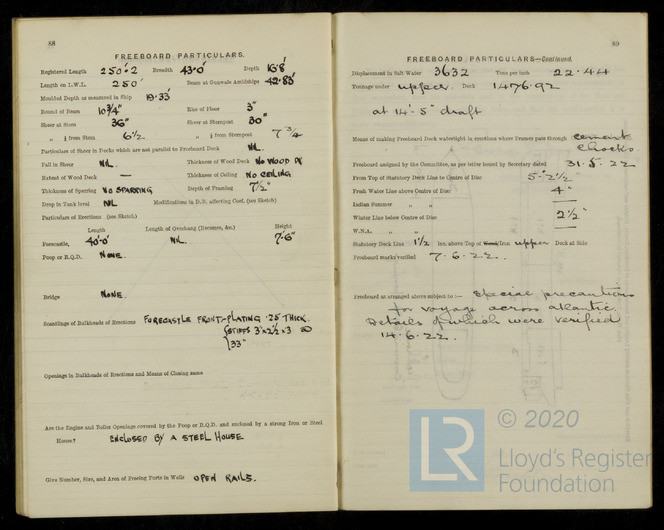 88
FREEBOARD PARTICULARS.
Registered Length 250'·2 Breadth 43'·0' Depth 16'8'
Length on L.W.L. 250' Beam at Gunwale Amidships 42·83'
Moulded Depth as measured in Ship 19·33'
Round of Beam 10¾" Rise of Floor 3"
Sheer at Stem 36" Sheer at Sternpost 30"
" ⅛ from Stem 6½ " ⅛ from Sternpost 7¾
Particulars of Sheer in Decks which are not parallel to Freeboard Deck NIL.
Fall in Sheer NIL. Thickness of Wood Deck NO WOOD DK
Extent of Wood Deck — Thickness of Ceiling NO CEILING
Thickness of Sparring NO SPARRING Depth of Framing 7½"
Drop in Tank level NIL Modifications in D.B. affecting Coef. (see Sketch)
Particulars of Erections (see Sketch)
Length Length of Overhang (Recesses, &c.) Height
Forecastle, 40'·0' NIL. 7'·6"
Poop or R.Q.D. NONE.
Bridge NONE.
Scantlings of Bulkheads of Erections FORECASTLE FRONT-PLATING ·25" THICK.
STIFFS 3"x2½"x3
33"
Openings in Bulkheads of Erections and Means of Closing same
Are the Engine and Boiler Openings covered by the Poop or R.Q.D. and enclosed by a strong Iron or Steel
House? ENCLOSED BY A STEEL HOUSE
Give Number, Size, and Area of Freeing Ports in Wells OPEN RAILS.
89
FREEBOARD PARTICULARS—Continued.
Displacement in Salt Water 3632 Tons per inch 22·44
Tonnage under upper Deck 1476·92
at 14'·5" draft
Means of making Freeboard Deck watertight in erections where Frames pass through cement
chocks
Freeboard assigned by the Committee, as per letter issued by Secretary dated 31·5·22
From Top of Statutory Deck Line to Centre of Disc 5'-2½"
Fresh Water Line above Centre of Disc 4"
Indian Summer " " —
Winter Line below Centre of Disc 2½"
W.N.A. " " —
Statutory Deck Line 1½ Ins. above Top of Wood/Iron upper Deck at Side
Freeboard marks verified 7·6·22.
Freeboard as arranged above subject to :— Special precautions
for voyage across atlantic.
Details of which were verified
14·6·22.
LR
© 2020
Lloyd's Register
Foundation